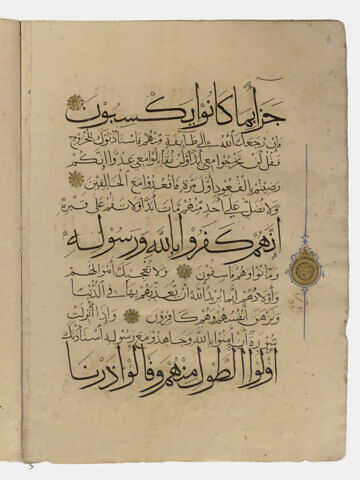 جزاء بما كانوا يكسبون
فان رجعك الله الى طايفة منهم فاستاذنوك للخروج
فقل لن تخرجوا معي ابدا ولن تقاتلوا معي عدوا انكم
رضيتم بالقعود اول مرة فاقعدوا مع الخالفين
ولا تصل على احد منهم مات ابدا ولا تقم على قبره
انهم كفروا بالله ورسوله
وماتوا وهم فاسقون ولا تعجبك اموالهم
واولادهم انما يريد الله ان يعذبهم بها في الدنيا
وتزهق انفسهم وهم كافرون واذا انزلت
سورة ان امنوا بالله وجاهدوا مع رسوله استاذنك
اولوا الطول منهم وقالوا ذرنا